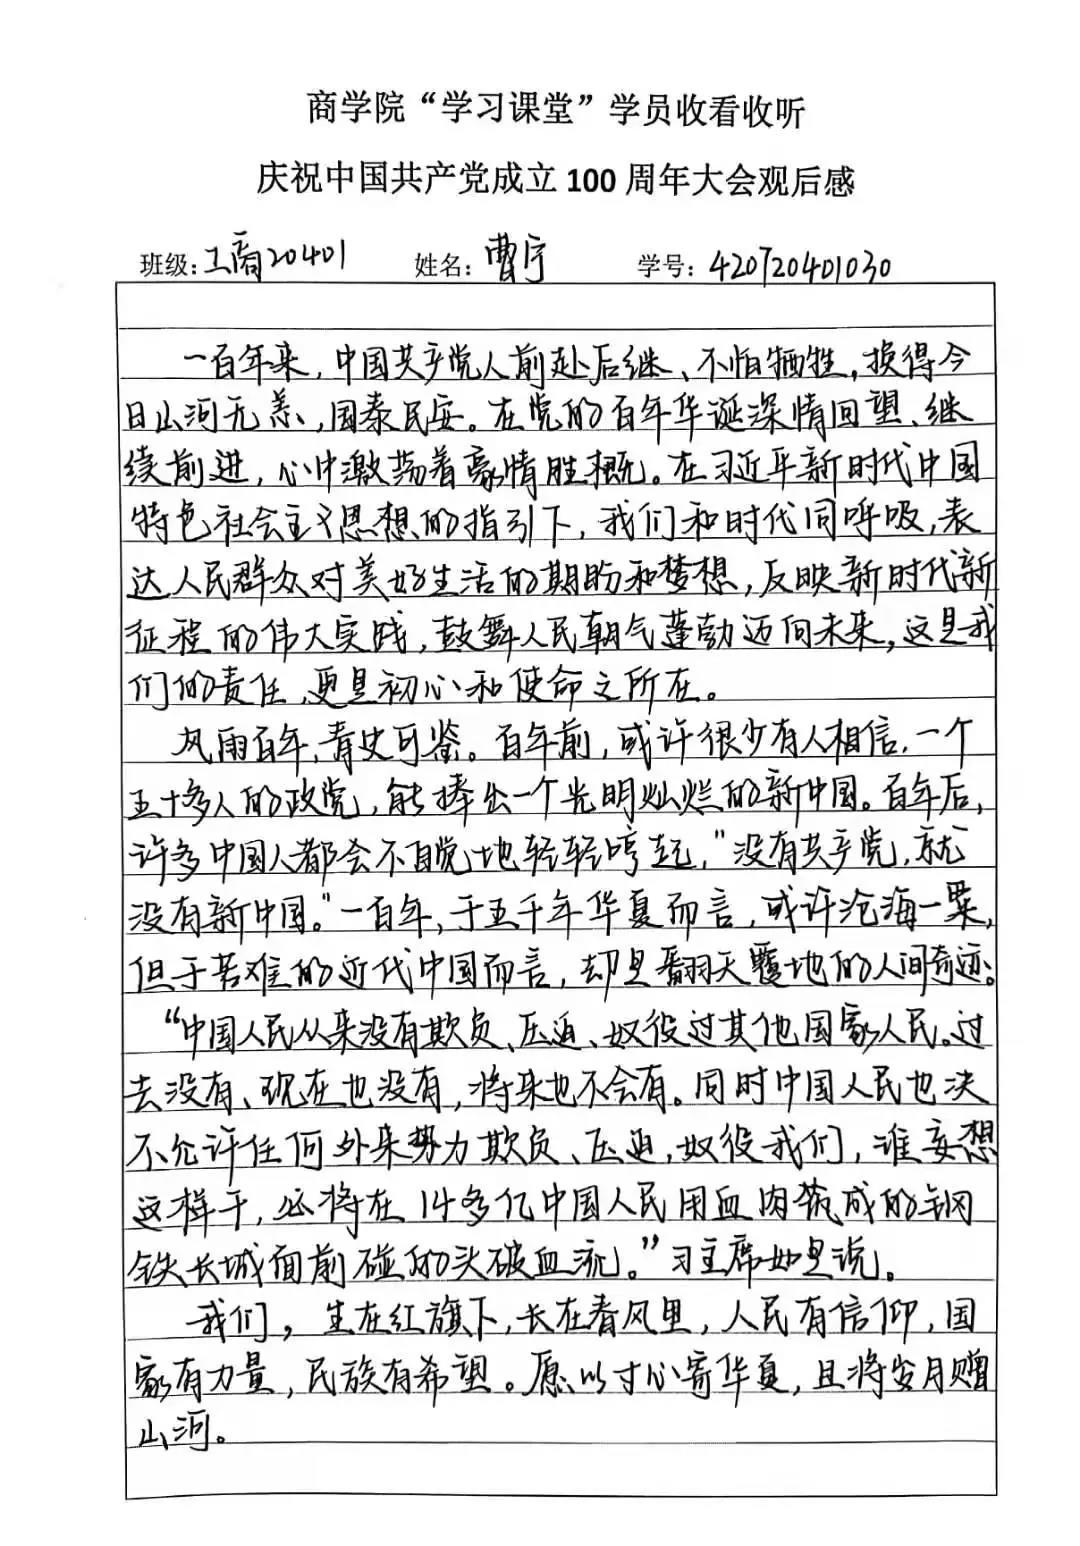 商学院“学习课堂”学员收看收听
庆祝中国共产党成立 100 周年大会观后感
班级：工商20401 姓名：曹宇 学号：420720401030
一百年来，中国共产党人前赴后继、不怕牺牲，换得今
日山河无恙，国泰民安。在党的百年华诞深情回望、继
续前进，心中激荡着豪情胜概。在习近平新时代中国
特色社会主义思想的指引下，我们和时代同呼吸，表
达人民群众对美好生活的期盼和梦想，反映新时代新
征程的伟大实践，鼓舞人民朝气蓬勃迈向未来，这是我
们的责任，更是初心和使命之所在。
风雨百年，青史可鉴。百年前，或许很少有人相信，一个
五十多人的政党，能捧出一个光明灿烂的新中国。百年后，
许多中国人都会不自觉地轻轻哼起，“没有共产党，就
没有新中国。”一百年，于五千年华夏而言，或许沧海一粟，
但于苦难的近代中国而言，却是翻天覆地的人间奇迹。
“中国人民从来没有欺负、压迫、奴役过其他国家人民。过
去没有、现在也没有，将来也不会有。同时中国人民也决
不允许任何外来势力欺负、压迫，奴役我们，谁妄想
这样干，必将在14多亿中国人民用血肉筑成的钢
铁长城面前碰的头破血流。”习主席如是说。
我们，生在红旗下，长在春风里，人民有信仰，国
家有力量，民族有希望。愿以寸心寄华夏，且将岁月赠
山河。